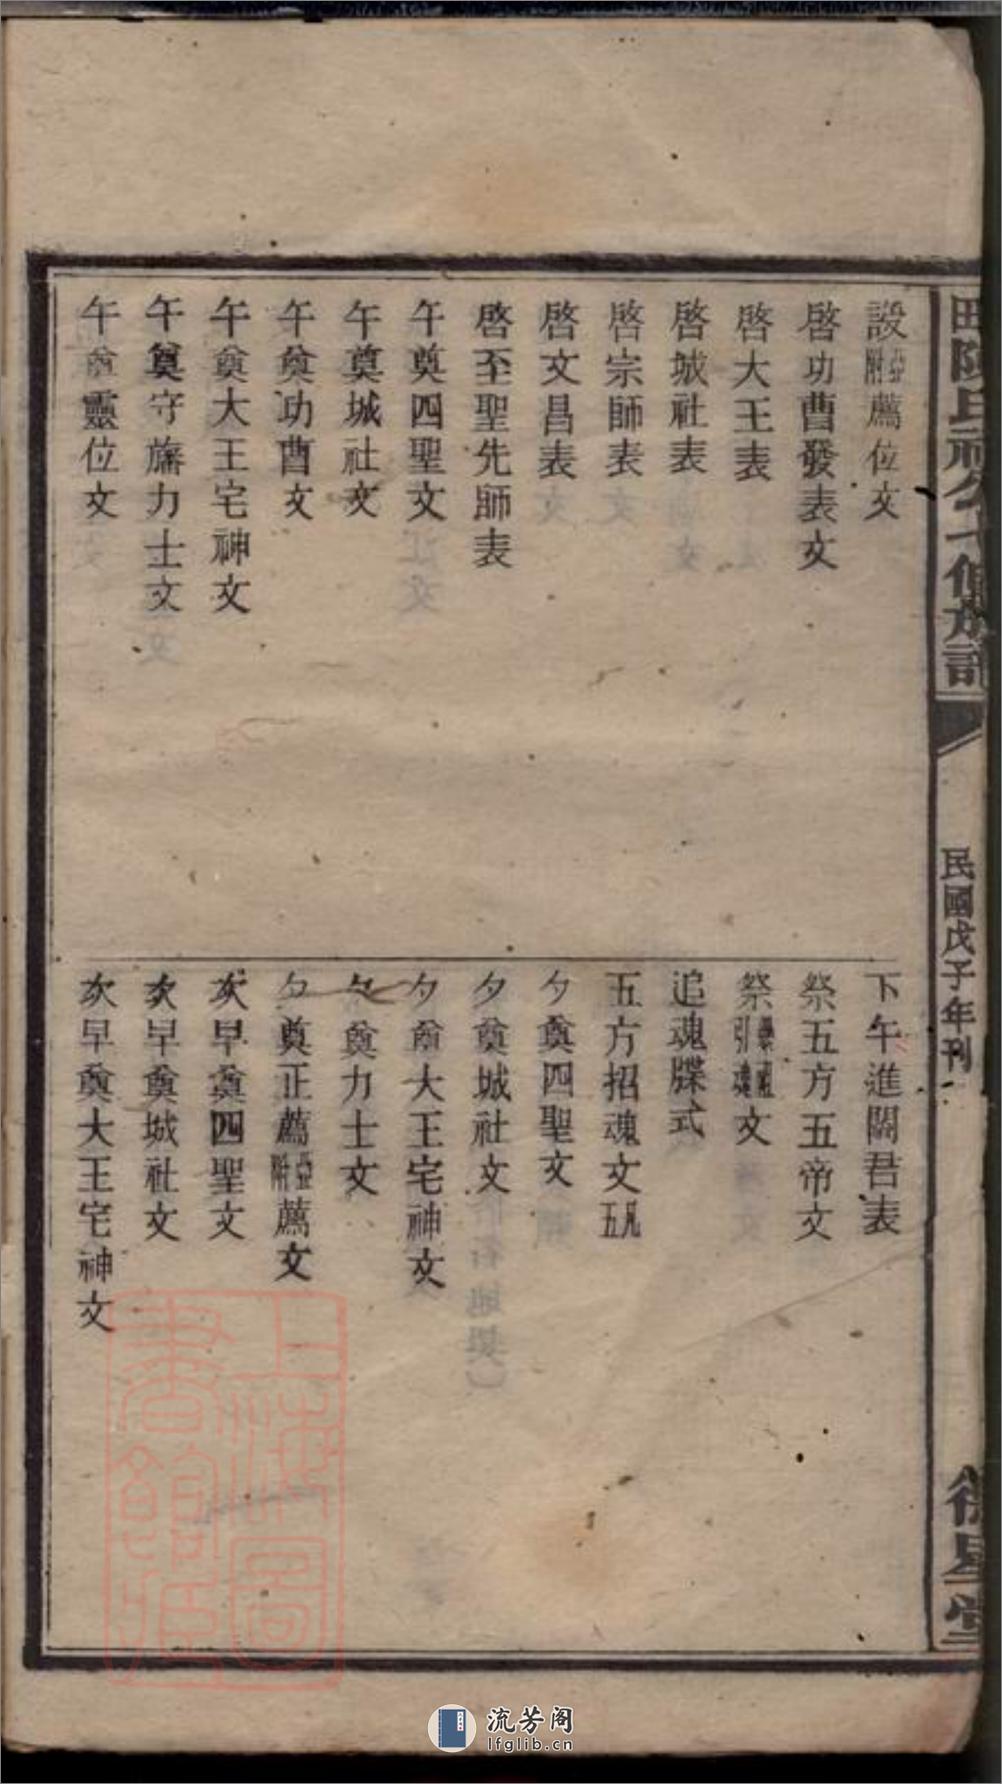 設附亞薦位文
啓功曹發表文
啓大王表
啓城社表
啓宗師表
啓文昌表
啓至聖先師表
午奠四聖文
午奠城社文
午奠功曹文
午奠大王宅神文
午奠守旛力士文
午奠靈位文
下午進閼君表
祭五方五帝文
祭引魂文
追魂牒式
五方招魂文凡五
夕奠四聖文
夕奠城社文
夕奠大王宅神文
夕奠力士文
夕奠正薦附亞薦文
次早奠四聖文
次早奠城社文
次早奠大王宅神文
陳氏七修族譜
民國戊子年刊
星堂
上海圖書館藏
流芳阁
lfglib.cn